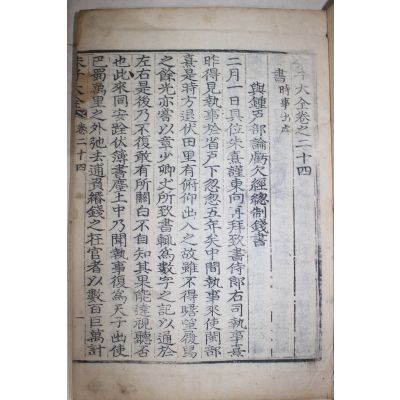 子大全卷之二十四
書 時事出處
與鍾戶部論虧欠經總制錢書
二月一日具位朱熹謹東向再拜致書侍郎右司執事熹
昨得見執事於省戶下忽忽五年矣中間執事來使閩部
熹是時方退伏田里有俯仰出入之故雖不得瞻望履舄
之餘光亦嘗以章少卿丈所致書輒爲數字之記以通於
左右是後乃不復敢有所關白不自知其果能達視聽否
也此來同安踰伏簿書塵土中乃聞執事復爲天子出使
巴蜀萬里之外弛去逋負緡錢之在官者以數百巨萬計
朱子大全 卷二十四